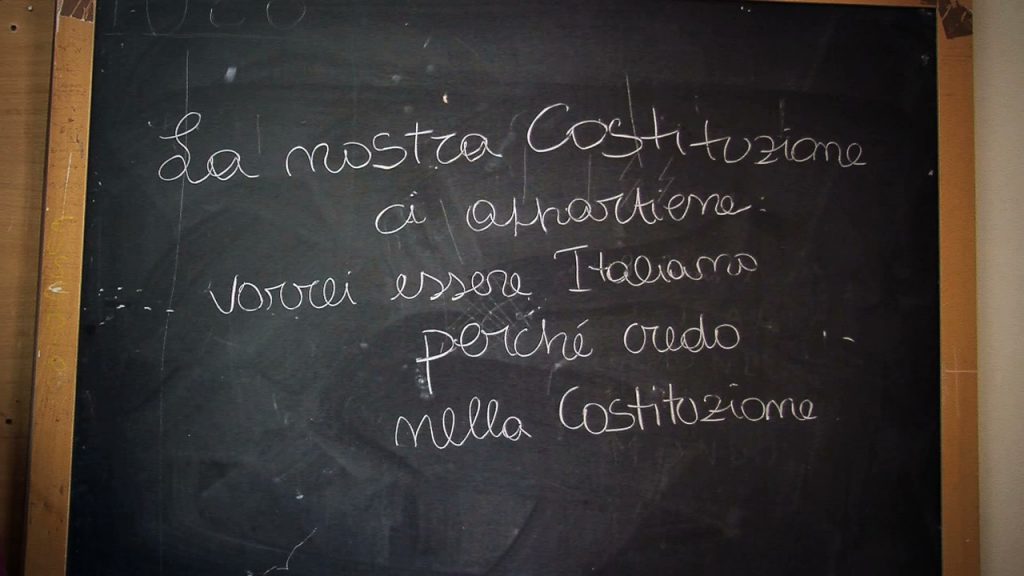 La nostra Costituzione
ci appartiene:
vorrei essere Italiano
perché credo
nella Costituzione